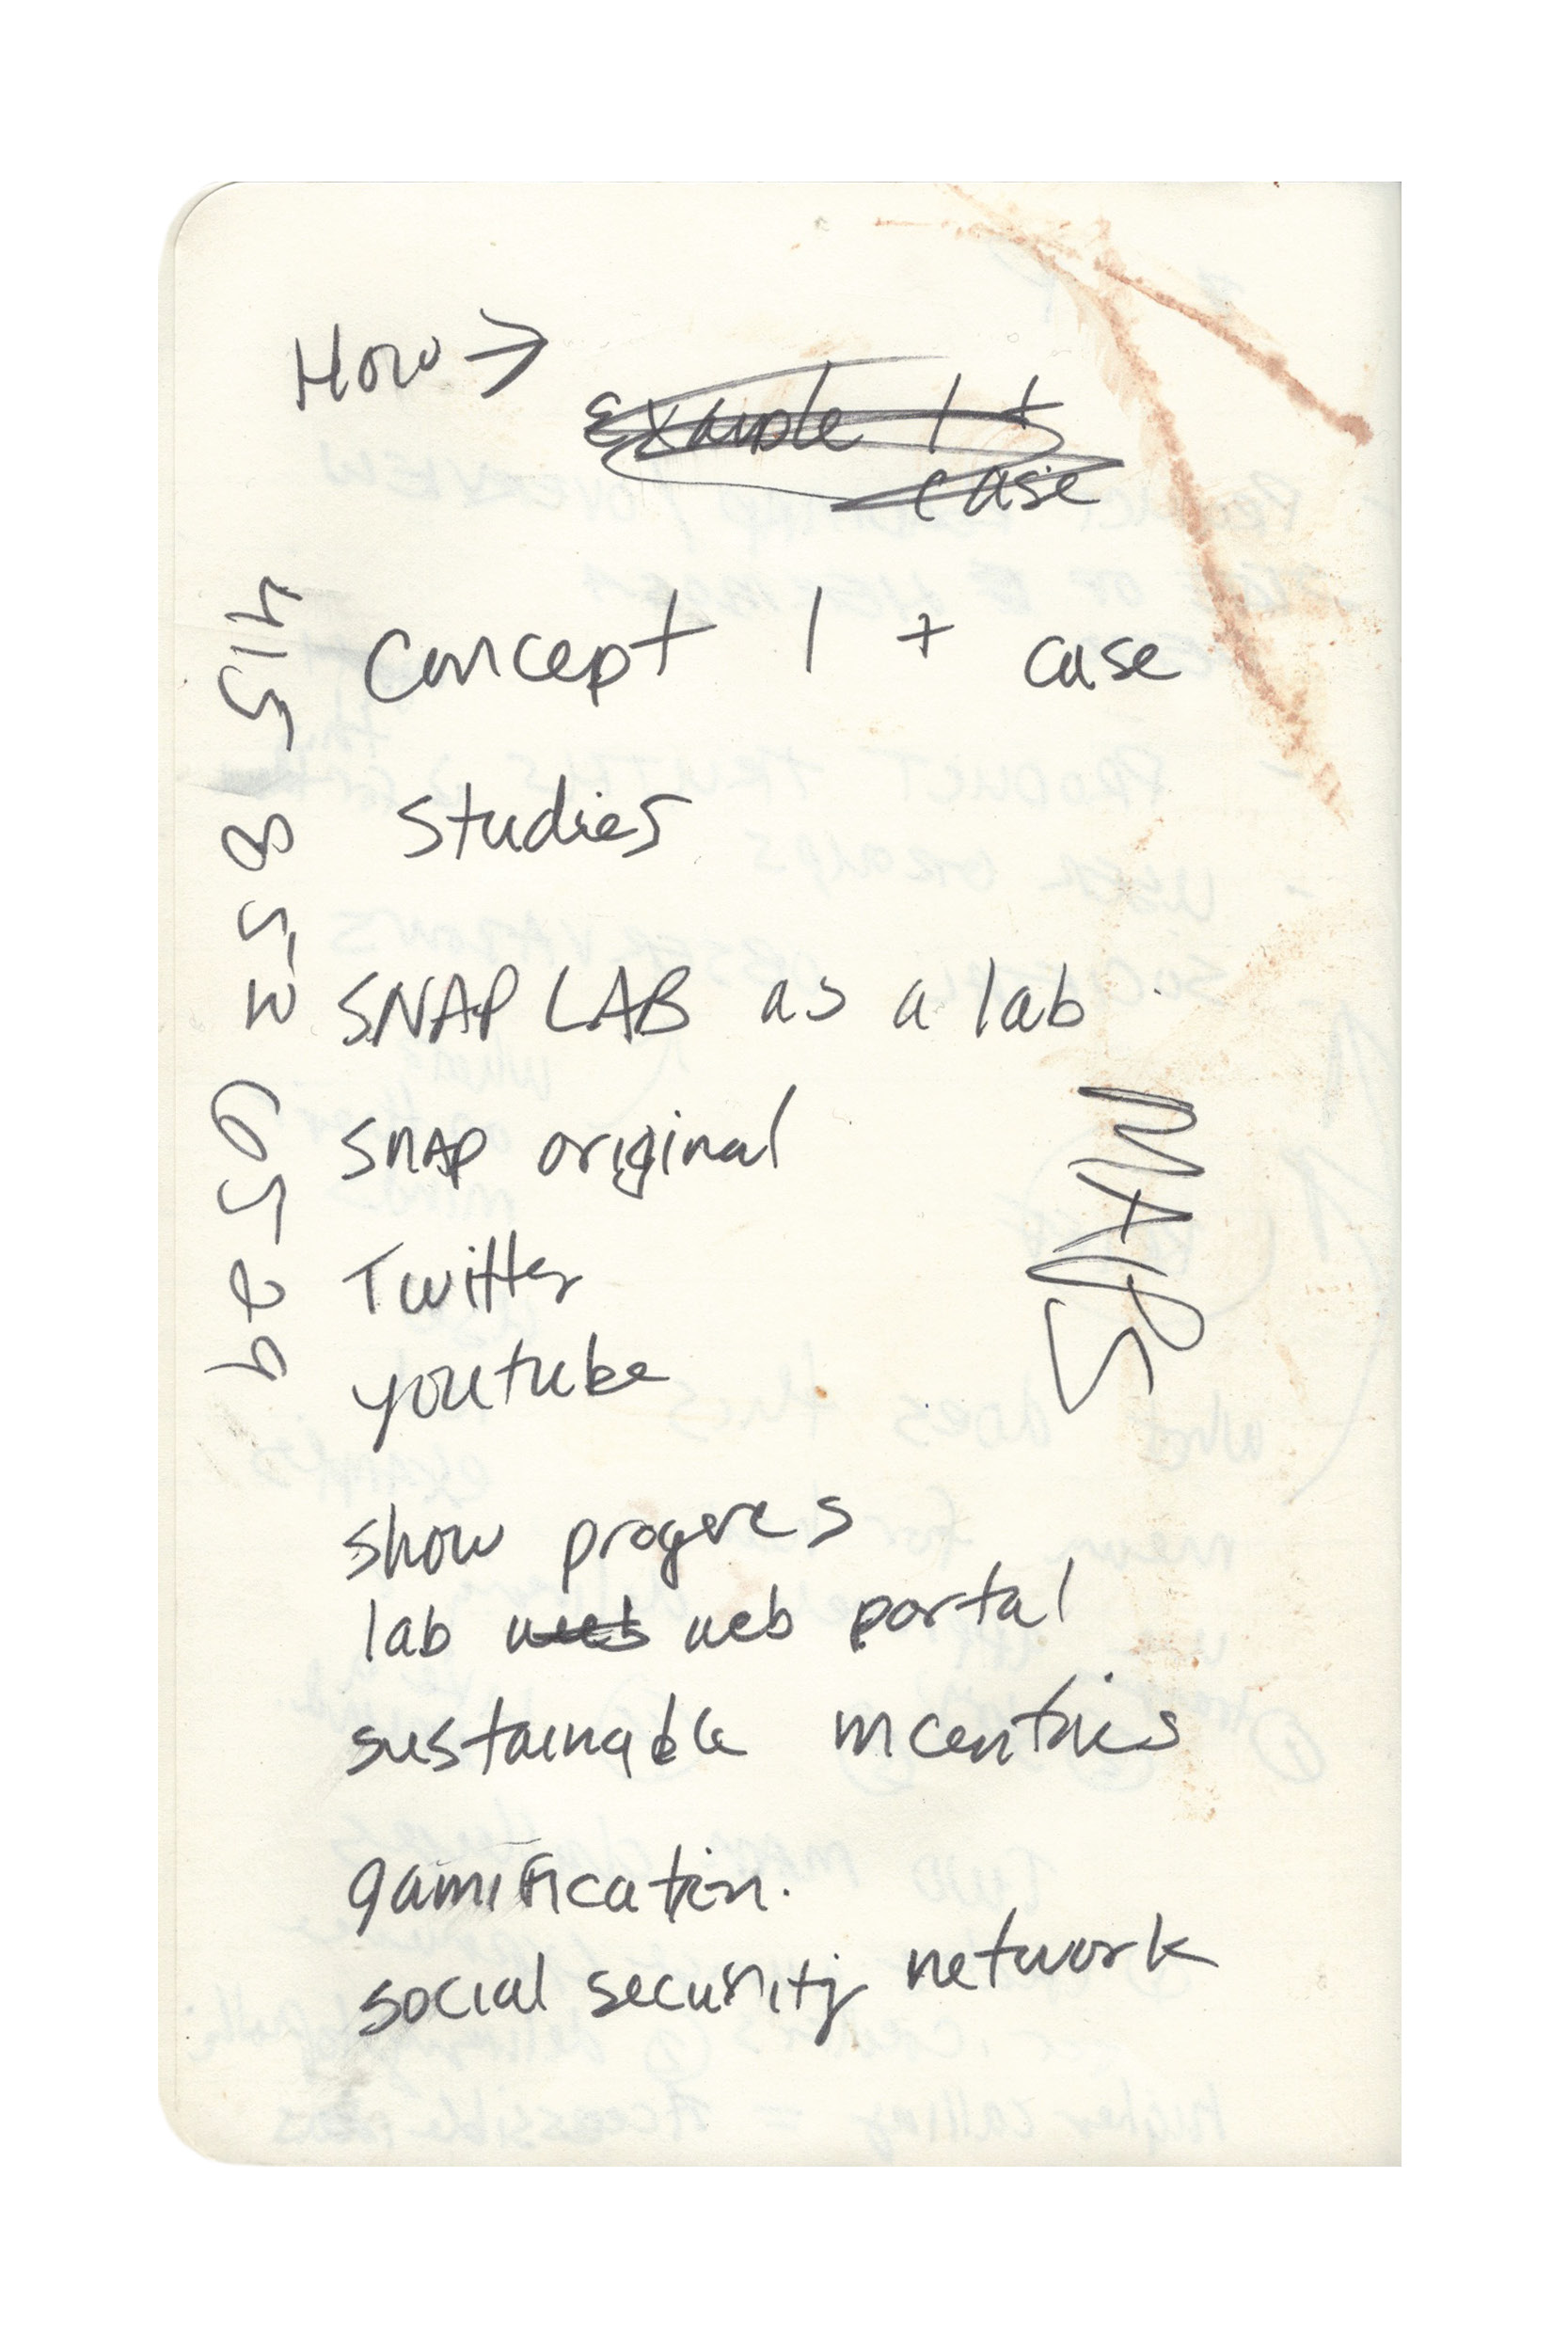 How →
Example 1 +
case
Concept 1 + case
studies
SNAP LAB as a lab
SNAP original
Twitter
youtube
show progres
lab web web portal
sustainable incentives
gamification.
social security network
415 853 6529
MAPS